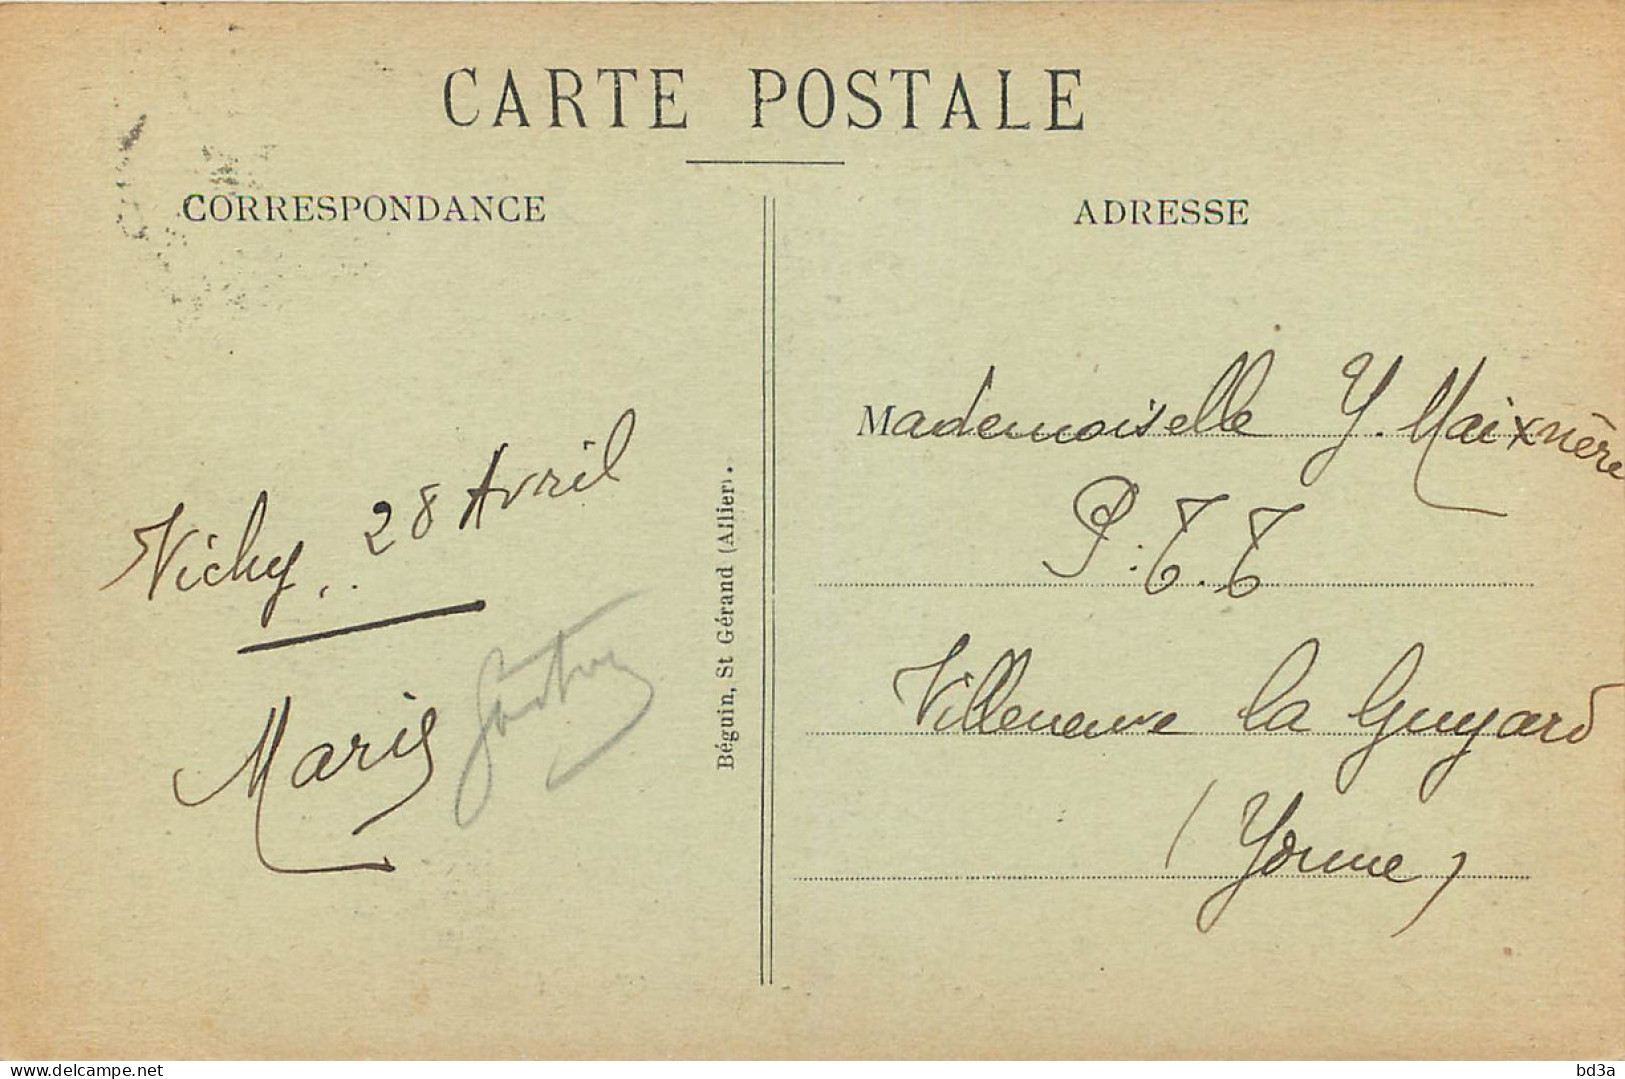 CARTE POSTALE
CORRESPONDANCE
ADRESSE
Vichy, 28 Avril
Marie
Béguin, St Gérand (Allier).
Mademoiselle Y. Maixnère
P.T.T.
Villeneuve la Guyard
(Yonne)
delcampe.net
bd3a